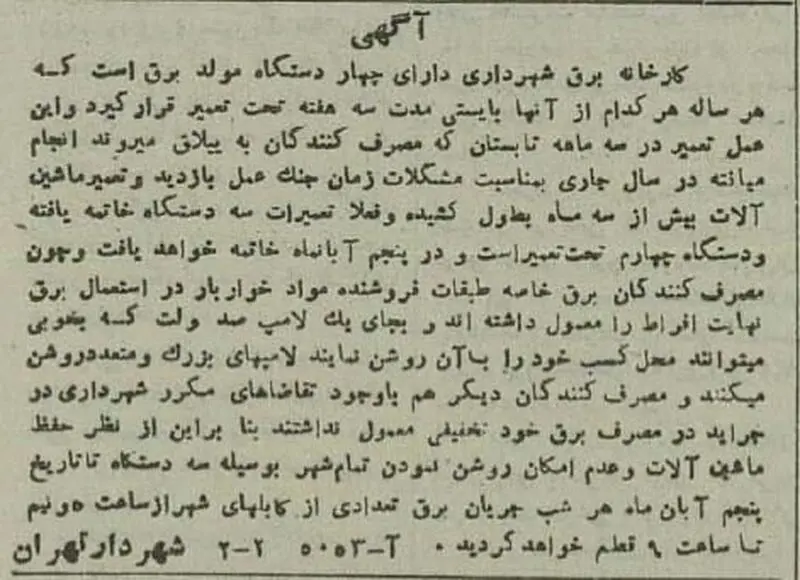 آگهی
کارخانه برق شهرداری دارای چهار دستگاه مولد برق است که
هر ساله هر کدام از آنها بایستی مدت سه هفته تحت تعمیر قرار گیرد واین
عمل تعمیر در سه ماهه تابستان که مصرف کنندگان به ییلاق میروند انجام
میافته در سال جاری بمناسبت مشکلات زمان جنك عمل بازدید وتعمیرماشین
آلات بیش از سه ماه بطول کشیده وفعلا تعمیرات سه دستگاه خاتمه یافته
ودستگاه چهارم تحت تعمیراست و در پنجم آبانماه خاتمه خواهد یافت وچون
مصرف کنندگان برق خاصه طبقات فروشنده مواد خواربار در استعمال برق
نهایت افراط را معمول داشته اند و بجای یك لامپ صد ولت که بخوبی
میتوانند محل کسب خود را بـاآن روشن نمایند لامپهای بزرك ومتعددروشن
میکنند و مصرف کنندگان دیگر هم باوجود تقاضاهای مکرر شهرداری در
جراید در مصرف برق خود تخفیفی معمول نداشتند بنا براین از نظر حفظ
ماشین آلات وعدم امکان روشن نمودن تمام شهر بوسیله سه دستگاه تاتاریخ
پنجم آبان ماه هر شب جریان برق تعدادی از کابلهای شهر ازساعت ۵ونیم
تـا ساعت ۹ قطع خواهد گردید ۰ آ-۵۰۵۳ ۲-۲ شهردار تهران